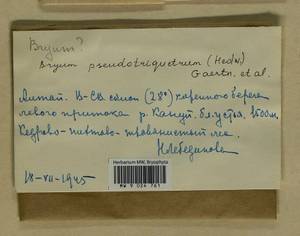 Bryum?
Bryum pseudotriquetrum (Hedw.)
Gaertn. et al.
Алтай. В-СВ склон (28°) коренного берега
левого притока р. Кануй. бл. устья. 1500 м.
Кедрово-пихтово-травянистый лес.
Н. Лебединова
18-VII-1945
Herbarium MW, Bryophyta
MW 9 024 761